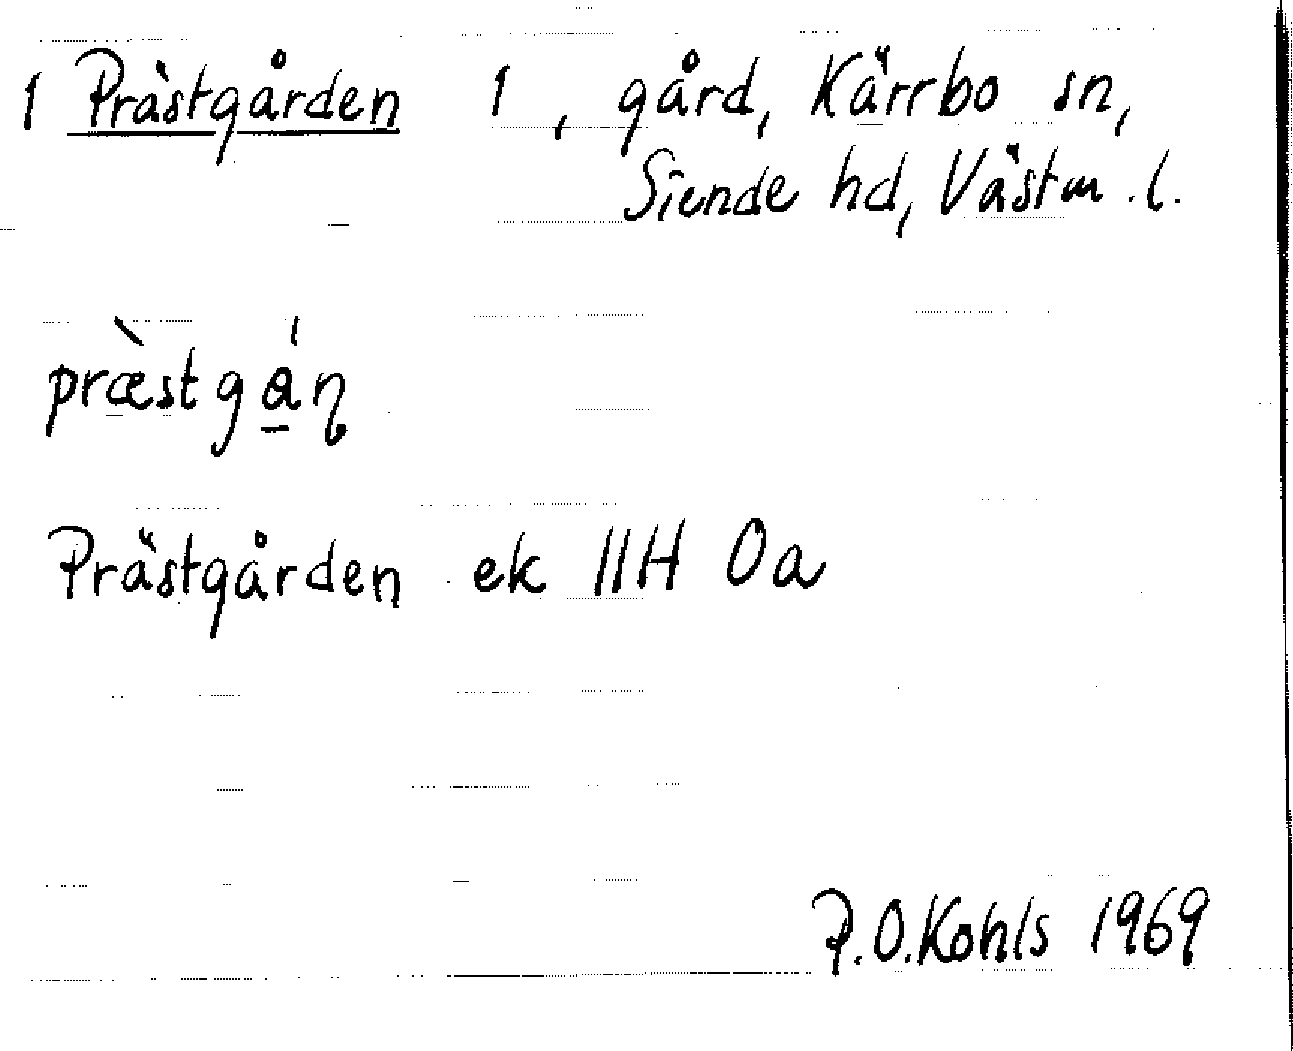 1 Prästgården 1, gård, Kärrbo sn,
Siende hd, Västm. l.
præ̀stgɑ́ɳ
Prästgården ek 11H 0a
P.O.Kohls 1969